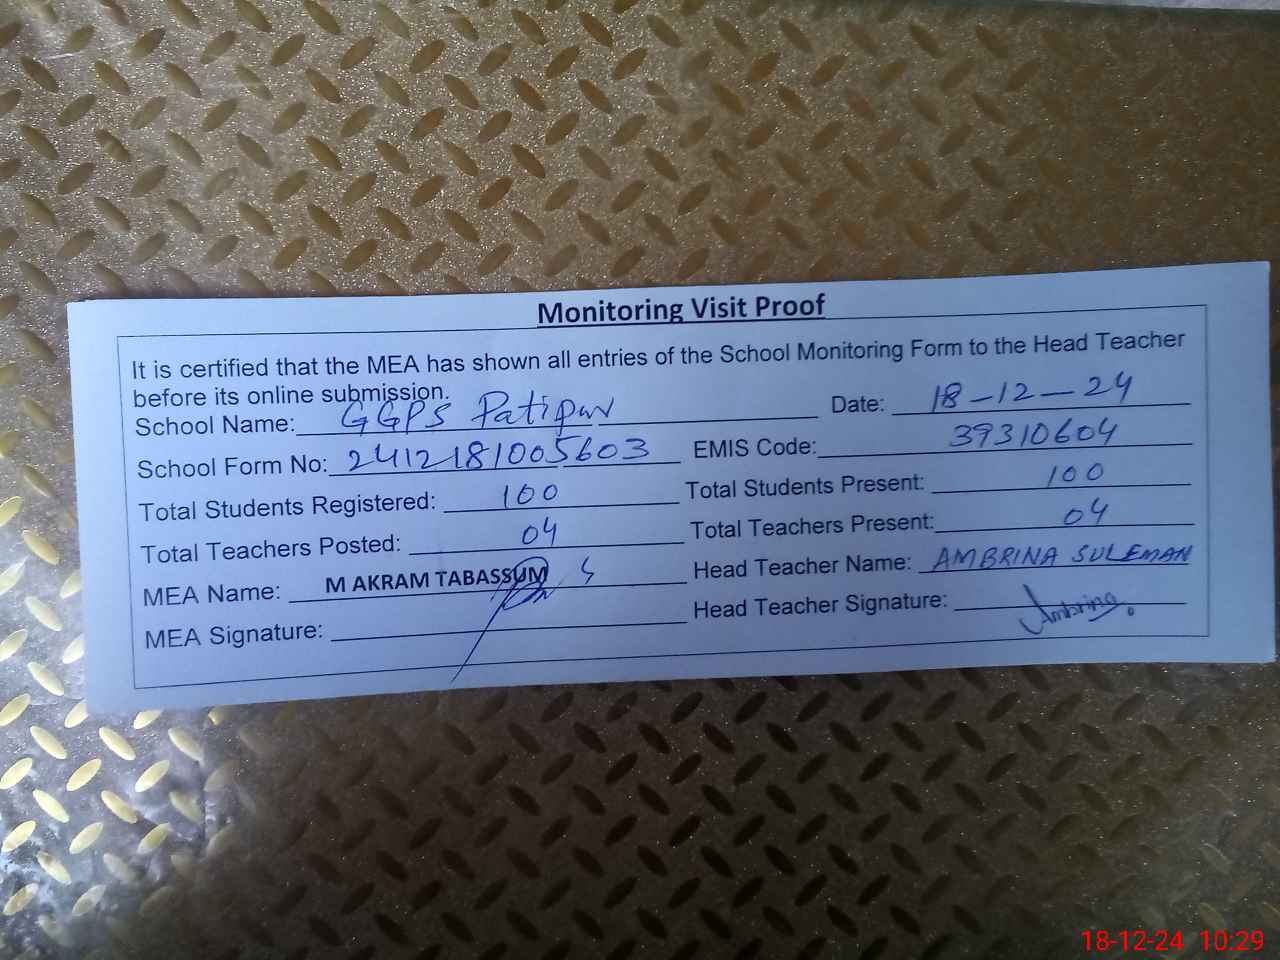 Monitoring Visit Proof
It is certified that the MEA has shown all entries of the School Monitoring Form to the Head Teacher
before its online submission.
School Name: GGPS Patipur Date: 18-12-24
School Form No: 2412181005603 EMIS Code: 39310604
Total Students Registered: 100 Total Students Present: 100
Total Teachers Posted: 04 Total Teachers Present: 04
MEA Name: M AKRAM TABASSUM Head Teacher Name: AMBRINA SULEMAN
MEA Signature: Head Teacher Signature: Ambrina.
18-12-24 10:29